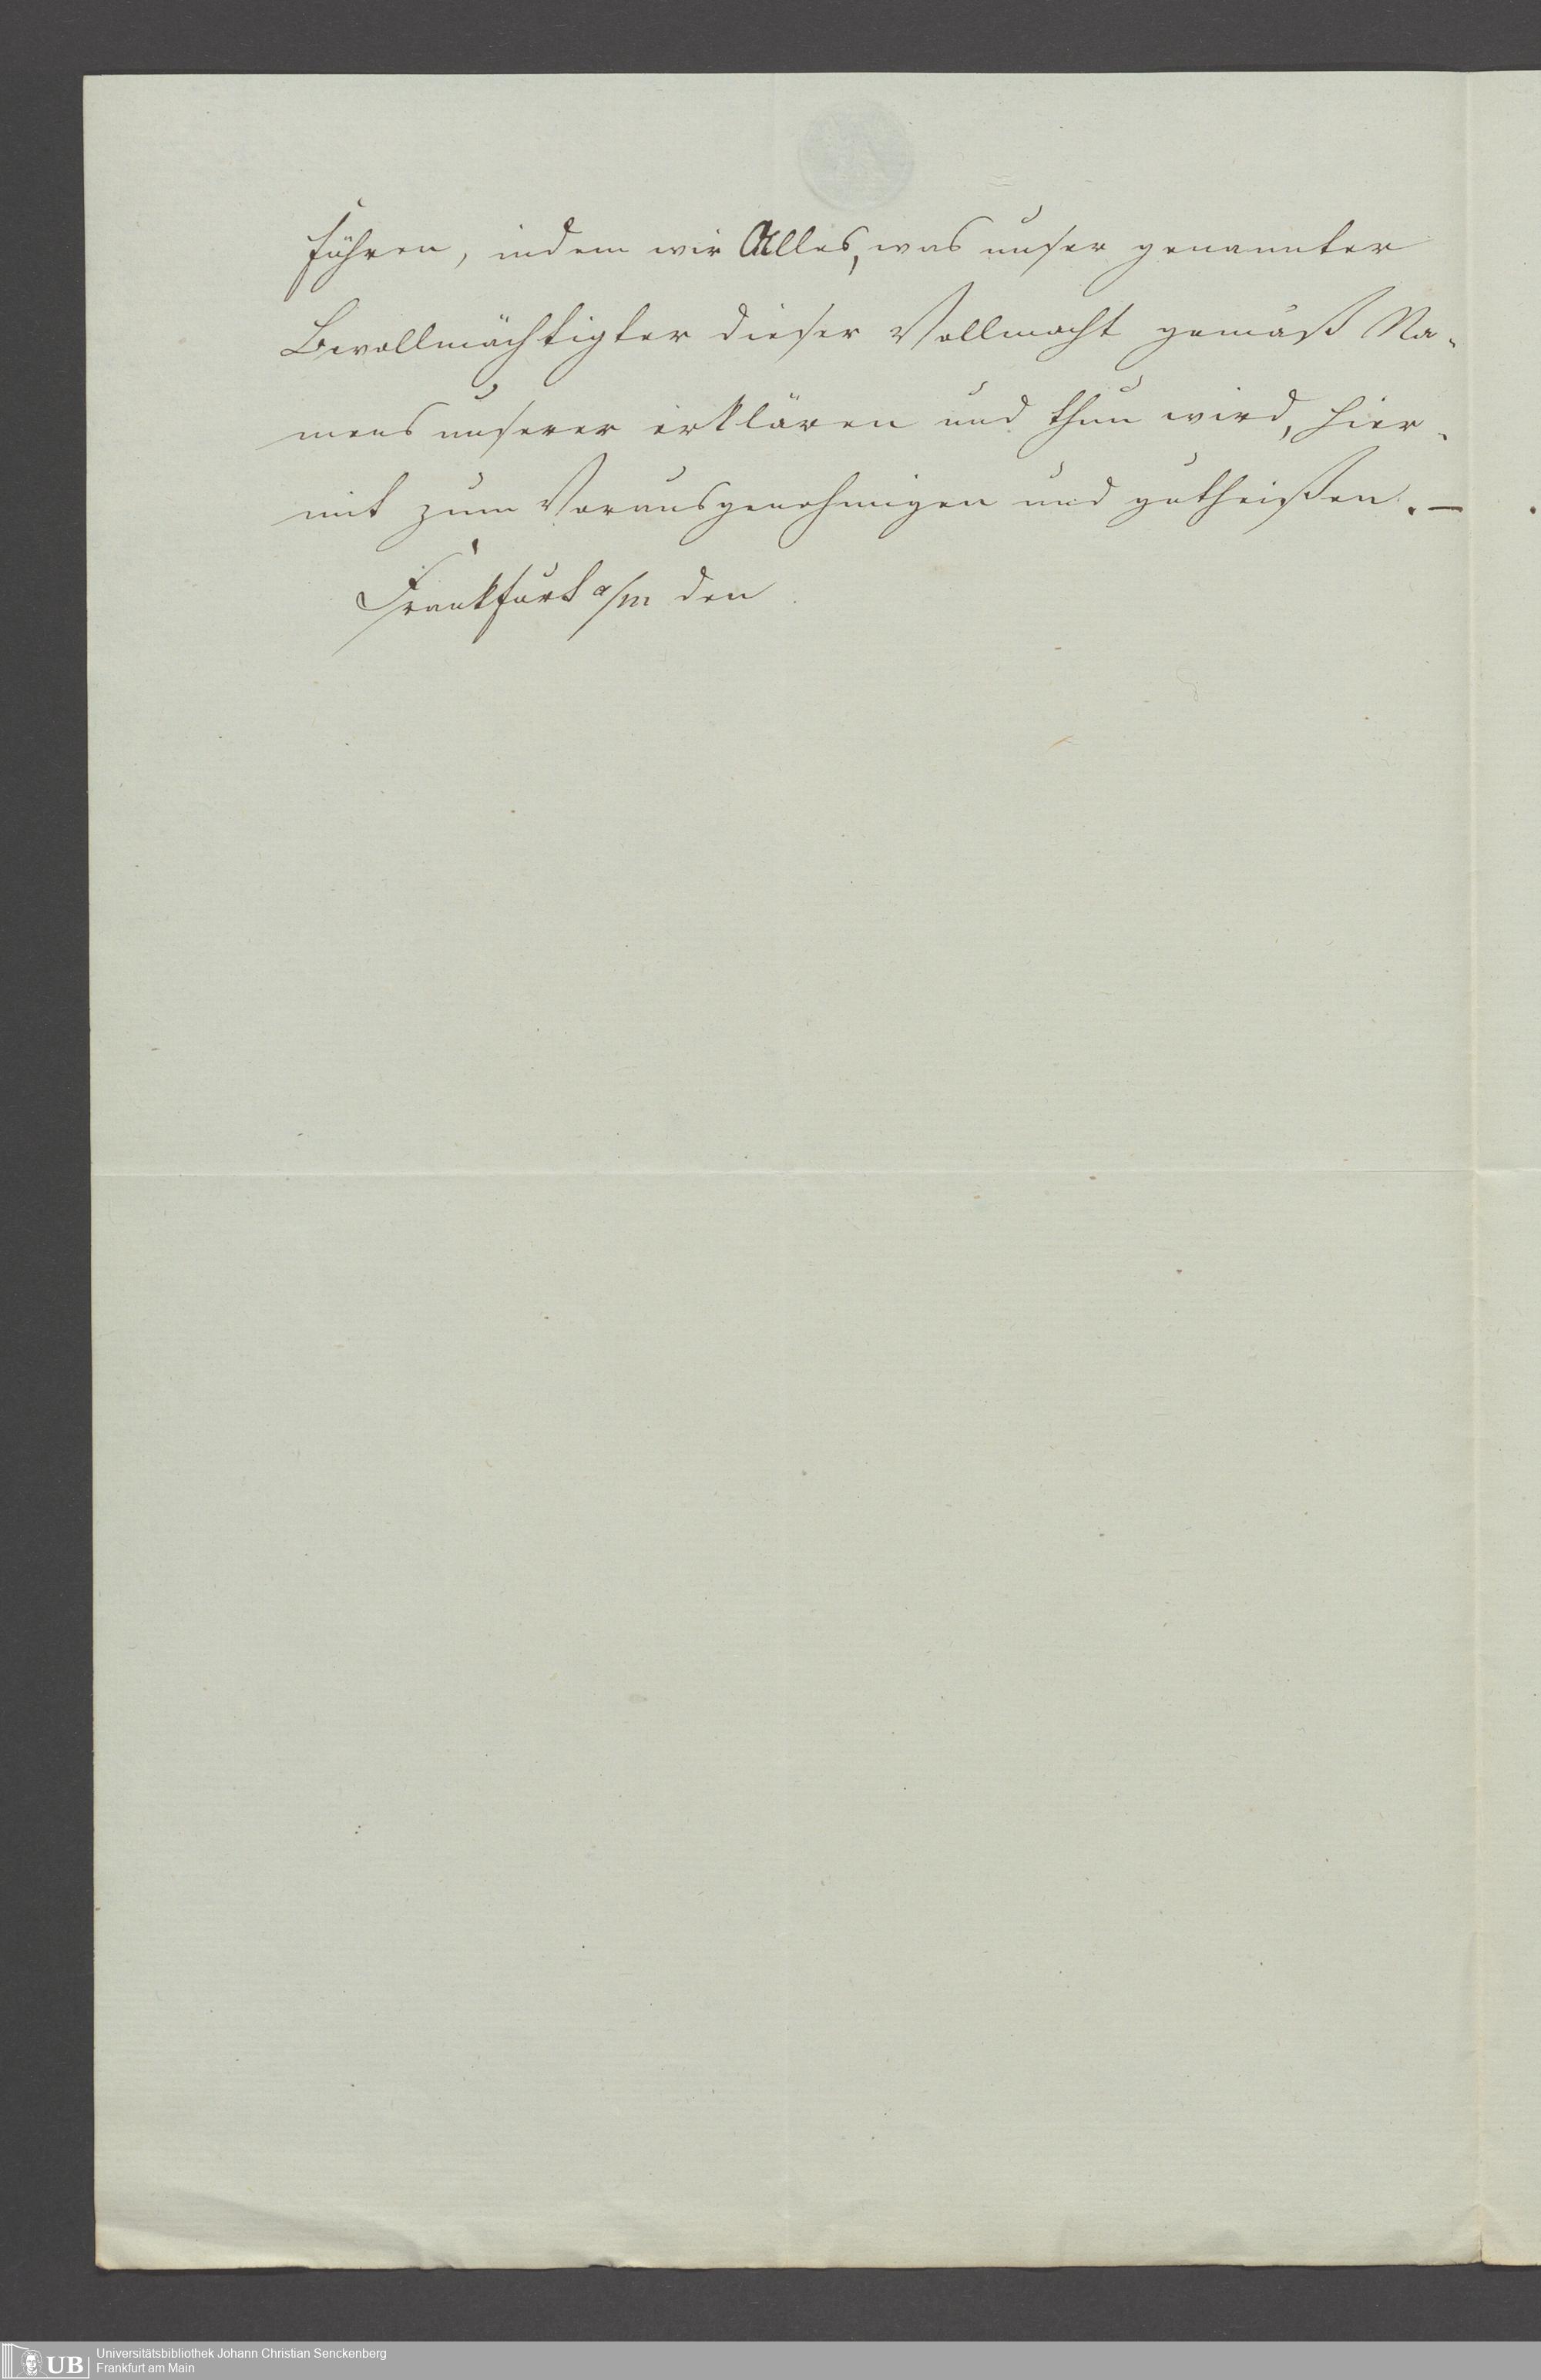 führen, indem wir Alles, was unser genannter
Bevollmächtigter dieser Vollmacht gemäß Na-
mens unserer erklären und thun wird, hier-
mit zum Voraus genehmigen und gutheißen. —
Frankfurt a/m den
UB
Universitätsbibliothek Johann Christian Senckenberg
Frankfurt am Main